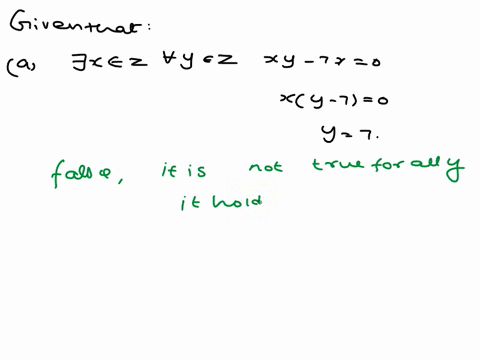 Given that:
(a, ∃x∈z ∀y∈z xy-7x=0
x(y-7)=0
y=7.
false, it is not true for all y
it hold